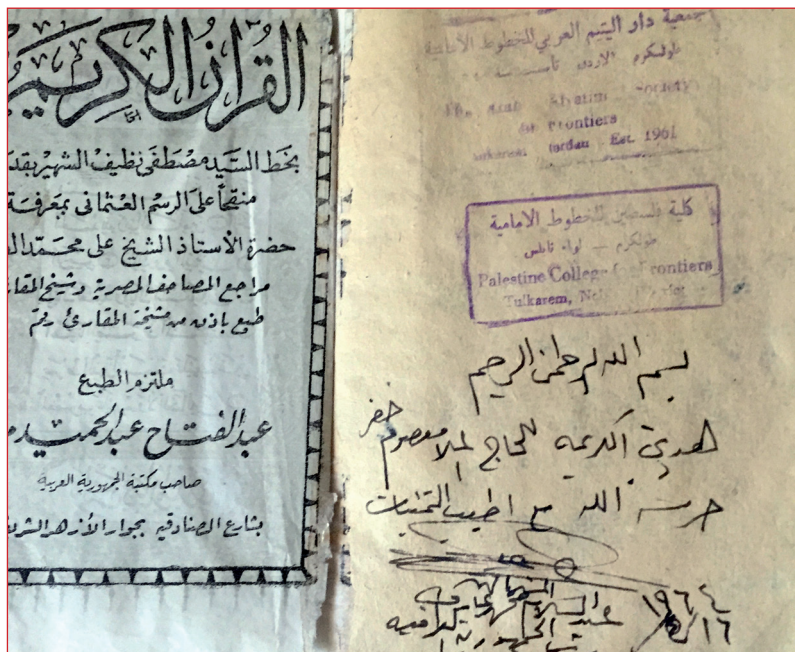 القرآن الكريم
بخط السيد مصطفى نظيف الشهير بقد
منقحاً على الرسم العثماني بمعرفة
حضرة الأستاذ الشيخ على محمد ال
مراجع المصاحف المصرية وشيخ المقا
طبع باذن من مشيخة المقارئ رقم
ملتزم الطبع
عبد الفتاح عبد الحميد م
صاحب مكتبة الجمهورية العربية
بشارع الصنادقيه بجوار الأزهر الشر
جمعية دار اليتيم العربي للخطوط الأمامية
طولكرم الاردن تأسست سنة
The Arab Society
Frontiers
Jordan Est. 1961
كلية فلسطين للخطوط الامامية
طولكرم – لواء نابلس
Palestine College Frontiers
Tulkarem,
بسم الله الرحمن الرحيم
هدية للحاج الملا معصوم خضر
حرسه الله مع اطيب التمنيات
عبد السلام عارف
١٩٦٤